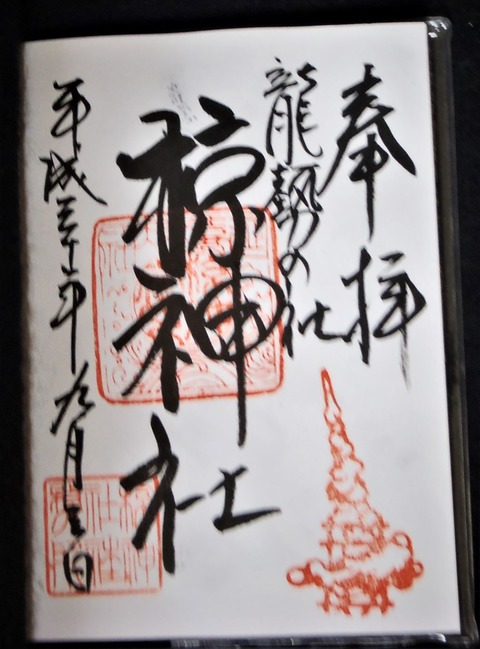 奉拝
龍勢の社
椋神社
平成三十年九月三日